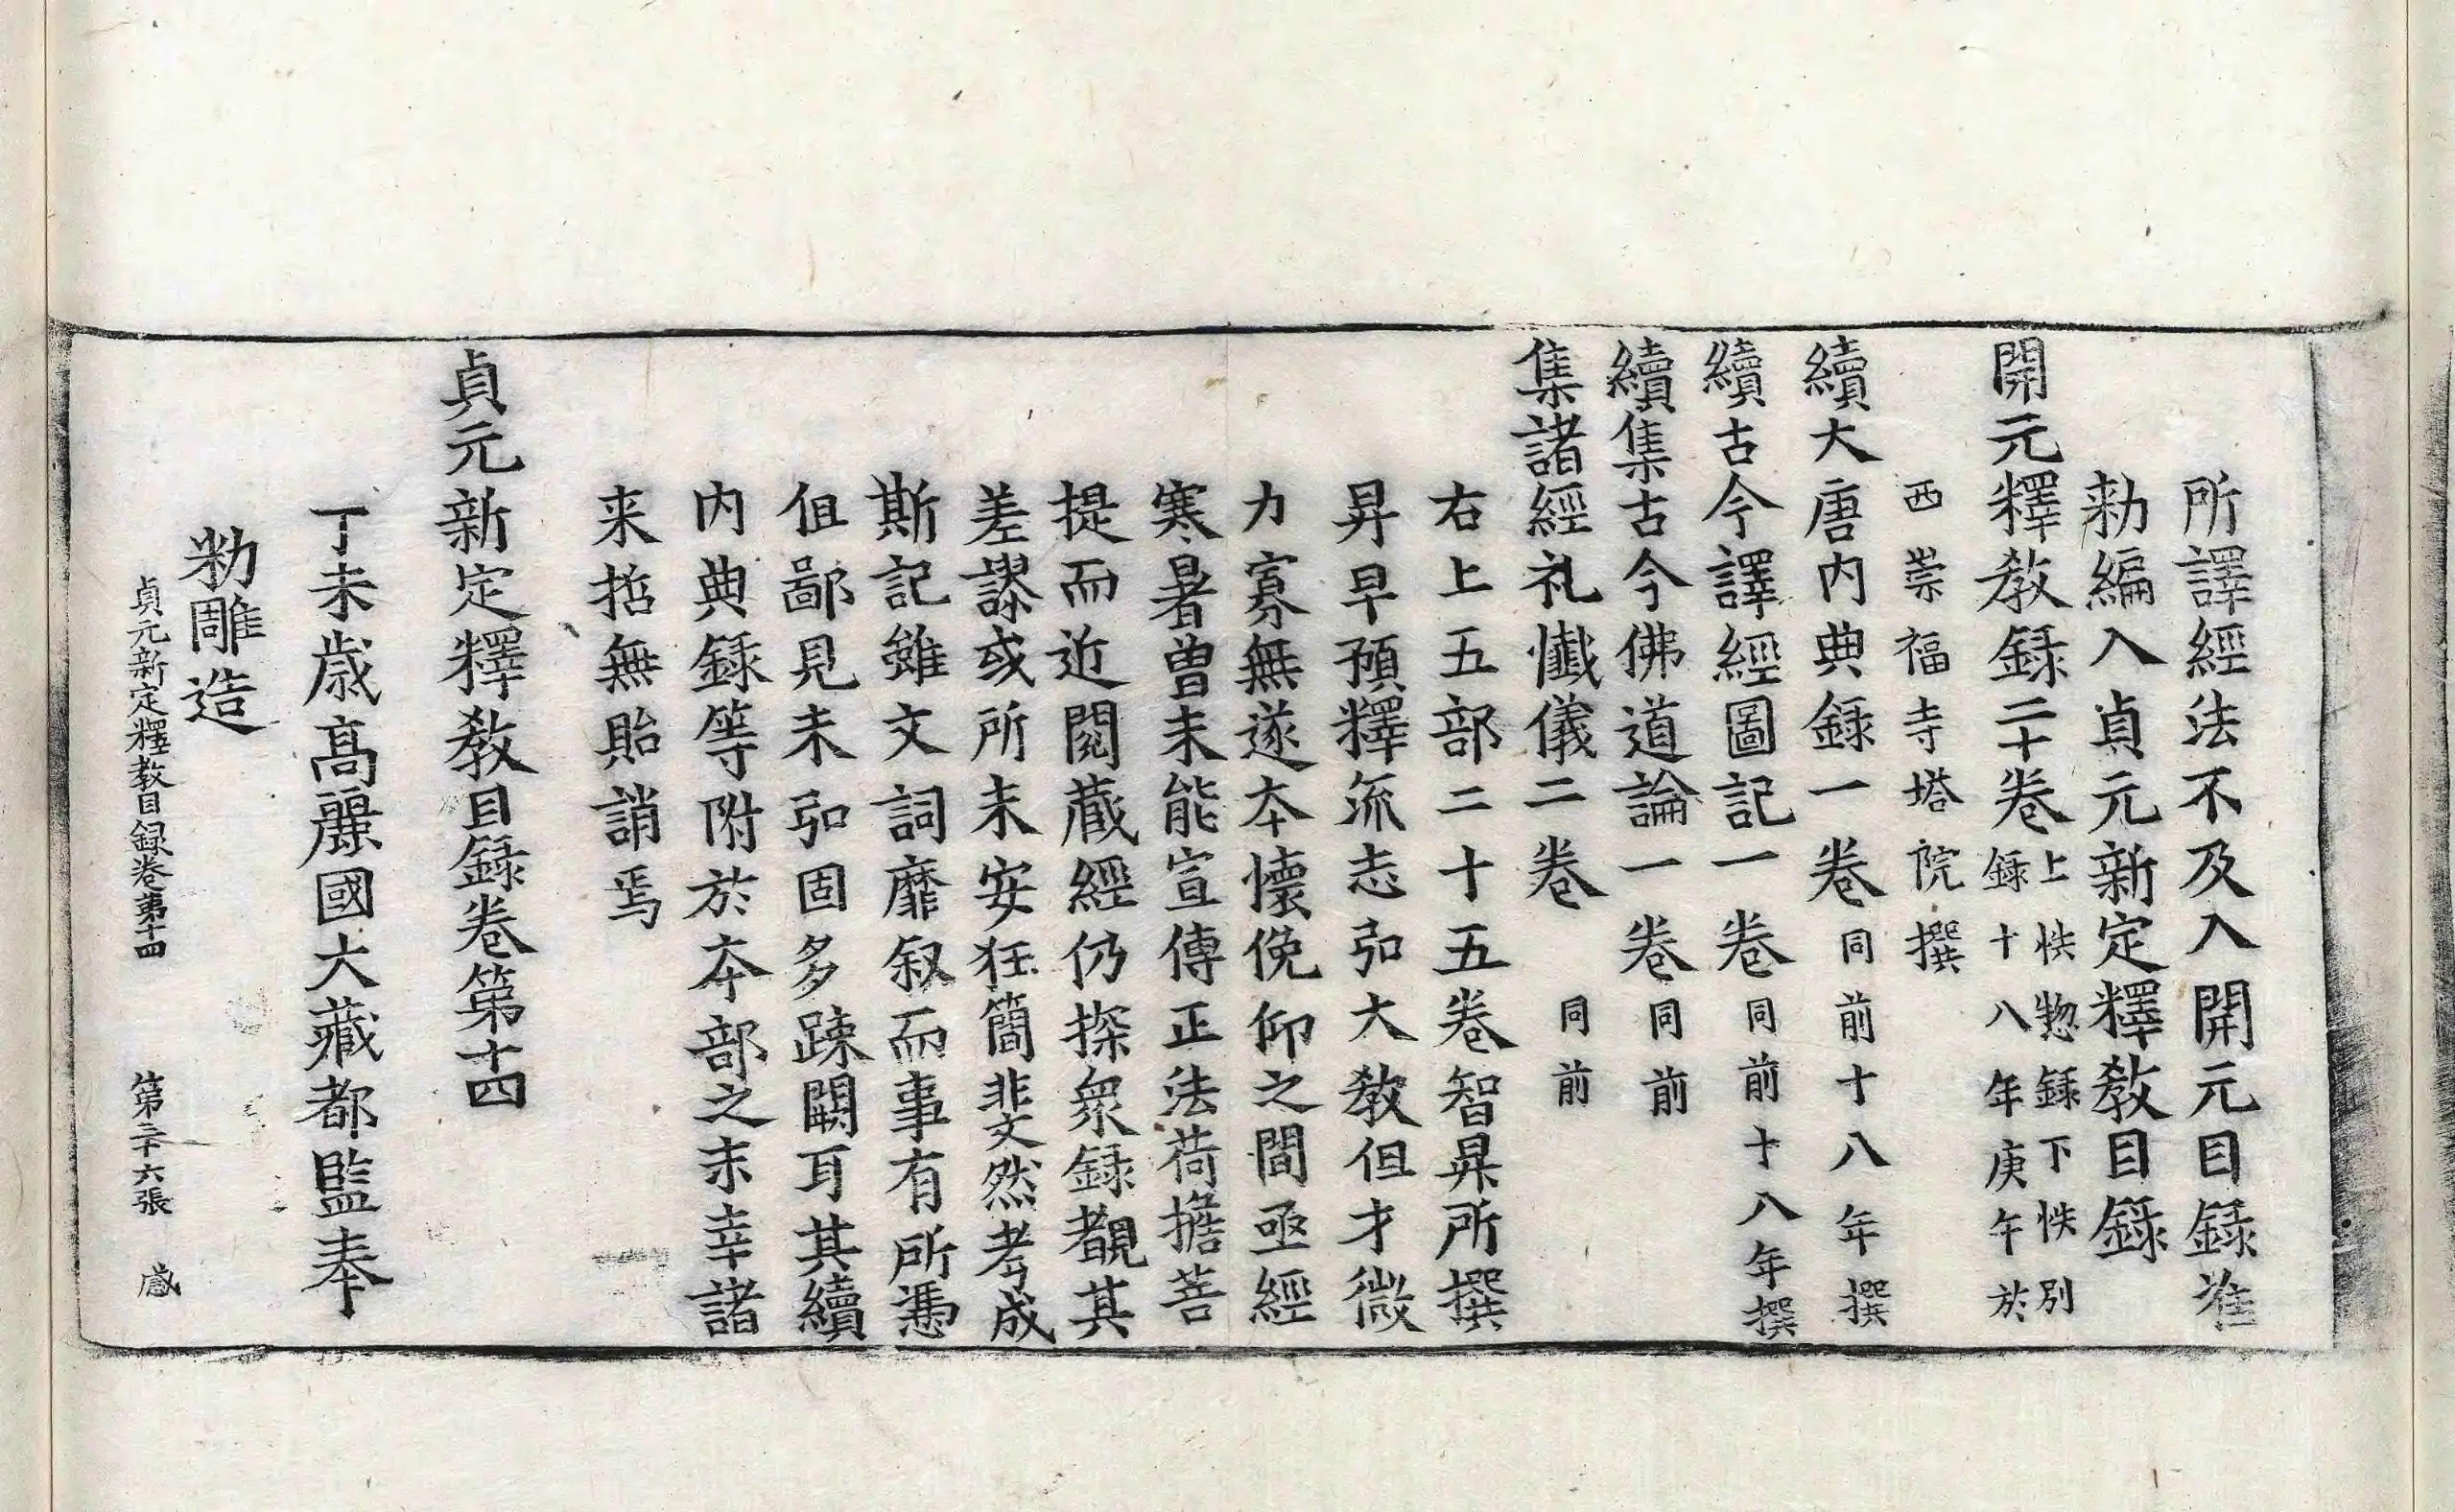 所譯經法不及入開元目録准
勑編入貞元新定釋教目録
開元釋教録二十卷上帙惣録下帙別
録十八年庚午於
西崇福寺塔院撰
續大唐内典録一卷同前十八年撰
續古今譯經圖記一卷同前十八年撰
續集古今佛道論一卷同前
集諸經礼懺儀二卷同前
右上五部二十五卷智昇所撰
昇早預釋流志弘大教但才微
力寡無遂本懷俛仰之間亟經
寒暑曾未能宣傳正法荷擔菩
提而近閱藏經仍探衆録覩其
差謬或所未安狂簡斐然考成
斯記雖文詞靡叙而事有所憑
伹鄙見未弘固多踈闕耳其續
内典録等附於本部之末幸諸
来哲無貽誚焉
貞元新定釋教目録卷第十四
丁未歲高麗國大藏都監奉
勑雕造
貞元新定釋教目録卷第十四 第三十六張 感